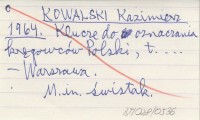 KOWALSKI Kazimierz
1964. Klucze do oznaczania
kręgowców Polski, t. ....
– Warszawa.
M.in. świstak.